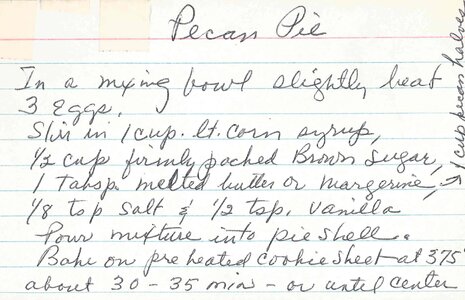 Pecan Pie
In a mixing bowl slightly beat
3 eggs.
Stir in 1 cup. lt. corn syrup,
1/2 cup firmly packed Brown Sugar,
1 Tabsp. melted butter or margerine,
1/8 tsp salt & 1/2 tsp. vanilla
Pour mixture into pie shell.
Bake on preheated cookie sheet at 375°
about 30 - 35 min - or until center
1 cup pecan halves